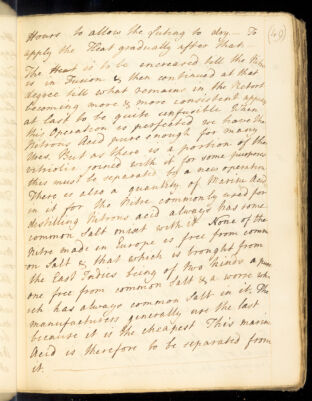 Hours to allow the Luting to dry — To (49)
apply the Heat gradually after that —
The Heat is to be encreased till the Nitre
is in Fusion & then continued at that
degree till what remains in the Retort
becoming more & more consistent appears
at last to be quite infusible When
this Operation is perfected we have the
Nitrous Acid pure enough for many
Uses. But as there is a portion of the
vitriolic joined with it for some purposes
this must be separated by a new operation
There is also a quantity of Marine Acid
in it for the Nitre commonly used for
distilling Nitrous acid always has some
common Salt mixt with it None of the
Nitre made in Europe is free from comm
on Salt & that which is brought from
the East Indies being of two kinds a pure
one free from common Salt & a worse whi
ch has always common Salt in it. The
manufacturers generally use the last
because it is the cheapest This marine
Acid is therefore to be separated from
it.